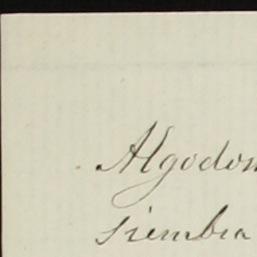 Algodon
siembra